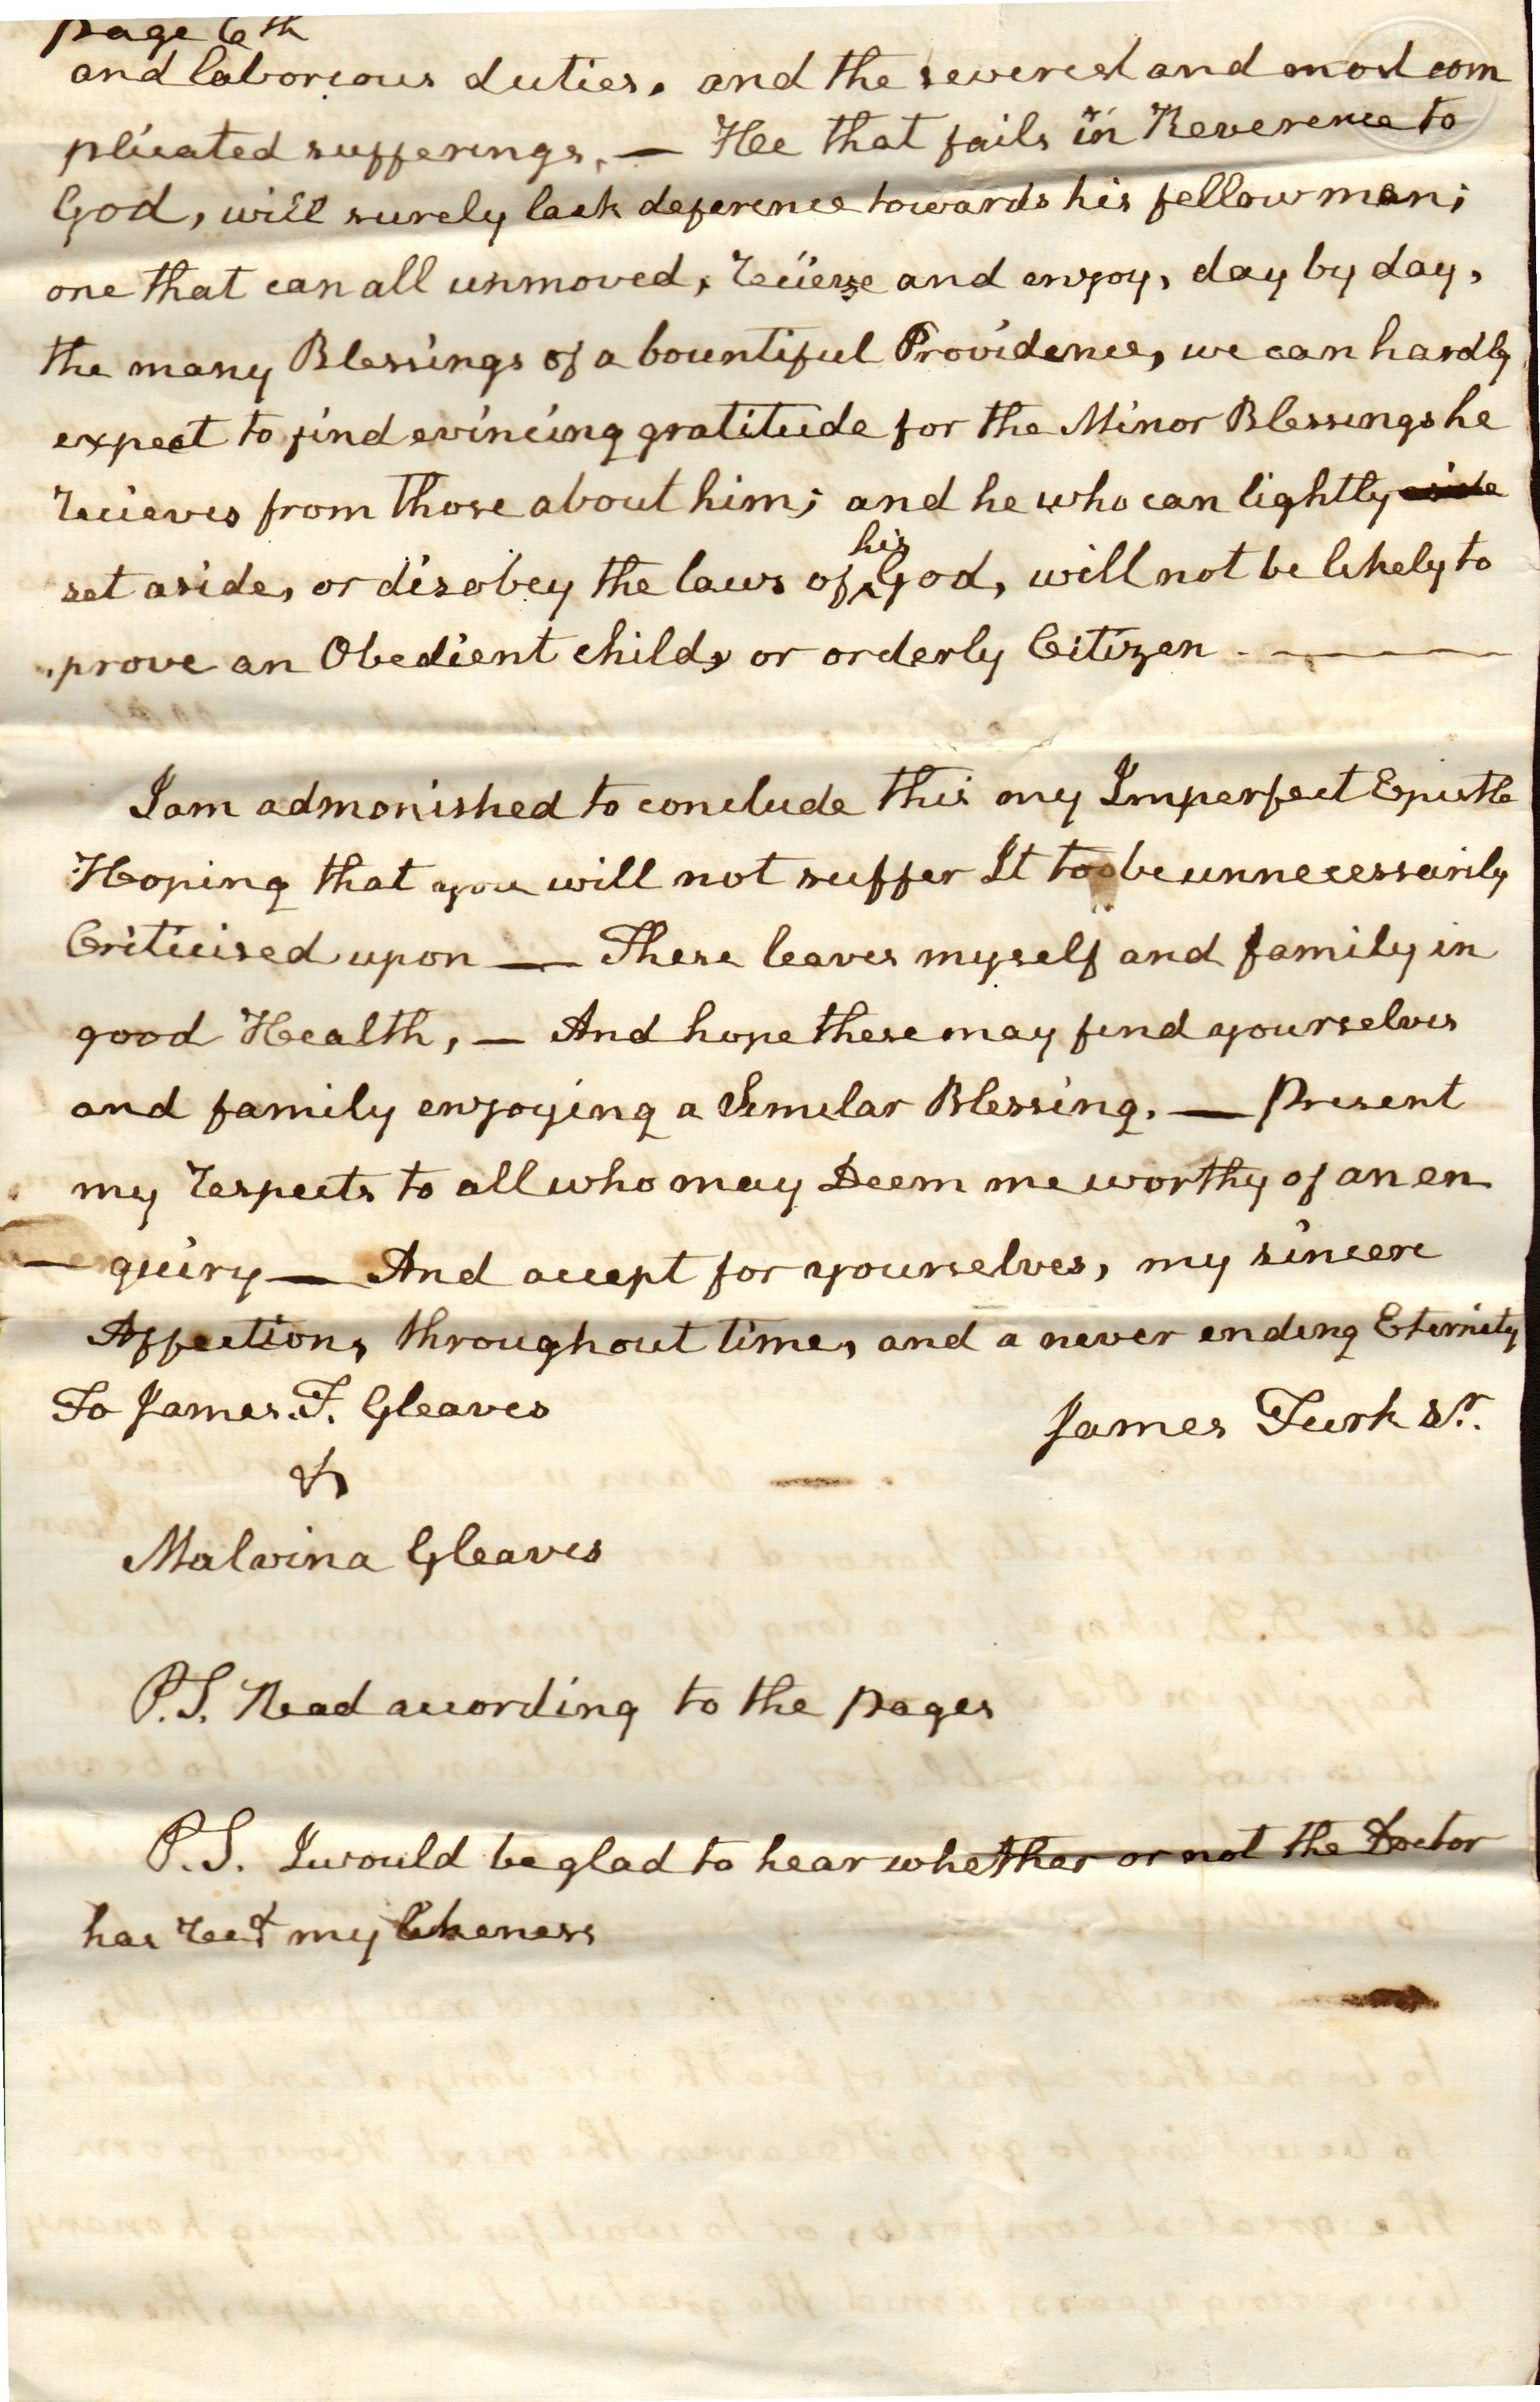 page 6th
and laborious duties, and the severest and most com
plicated sufferings, — Hee that fails in Reverence to
God, will surely lack deference towards his fellow man;
one that can all unmoved, and enjoy, day by day,
the many Blessings of a bountiful Providence, we can hardly
expect to find evincing gratitude for the Minor Blessings he
recieves from those about him; and he who can lightly aside
set aside, or disobey the laws of his God, will not be likely to
prove an Obedient child, or orderly Citizen. —
I am admonished to conclude this my Imperfect Epistle
Hoping that you will not suffer It to be unnecessarily
Criticised upon — These leaves myself and family in
good Health, — And hope these may find yourselves
and family enjoying a Similar Blessing. — Present
my respects to all who may Deem me worthy of an en
— quiry — And accept for yourselves, my sincere
Affection, throughout time, and a never ending Eternity
To James. T. Gleaves
James Turk Sr.
&
Malvina Gleaves
P.S. Read according to the pages
P.S. I would be glad to hear whether or not the Doctor
has recd my likeness